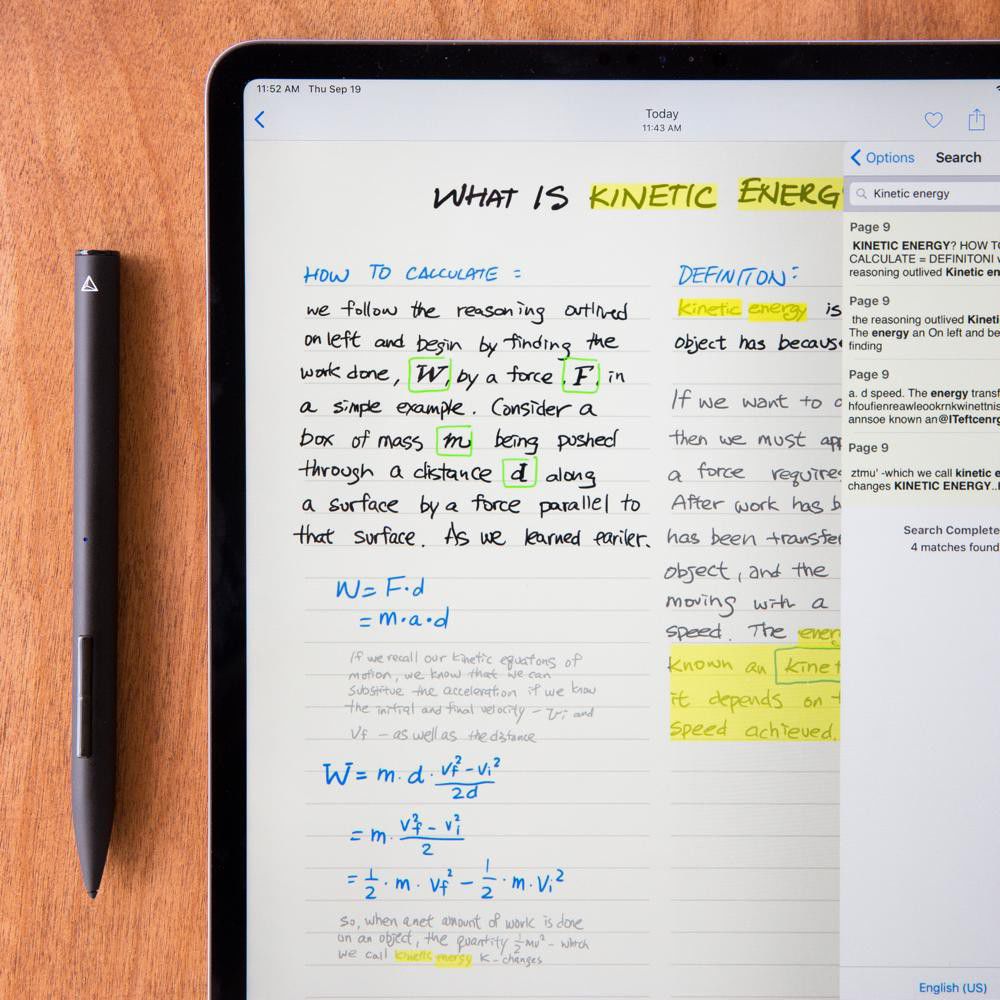 11:52 AM Thu Sep 19
Today
11:43 AM
WHAT IS KINETIC ENERG
HOW TO CALCULATE =
we follow the reasoning outlined
on left and begin by finding the
work done, W, by a force F, in
a simple example. Consider a
box of mass m being pushed
through a distance d along
a surface by a force parallel to
that surface. As we learned eariler.
W = F·d
= m·a·d
If we recall our kinetic equations of
motion, we know that we can
substitue the acceleration if we know
the initial and final velocity - Vi and
Vf - as well as the distance
W = m·d·vf²-vi²/2d
= m·vf²-vi²/2
= 1/2·m·vf² - 1/2·m·vi²
So, when a net amount of work is done
on an object, the quantity 1/2mv² - which
we call kinetic energy K - changes
DEFINITION:
kinetic energy is
object has becaus
If we want to
then we must ap
a force require
After work has b
has been transfe
object, and the
moving with a
speed. The ener
known an kinet
it depends on t
speed achieved.
Options Search
Kinetic energy
Page 9
KINETIC ENERGY? HOW TO
CALCULATE = DEFINITONI
reasoning outlived Kinetic en
Page 9
the reasoning outlived Kineti
The energy an On left and be
finding
Page 9
a. d speed. The energy transf
hfoufienreawleookrnkwinettnis
annsoe known an@ITeftcenrg
Page 9
ztmu' -which we call kinetic e
changes KINETIC ENERGY..
Search Complete
4 matches found
English (US)